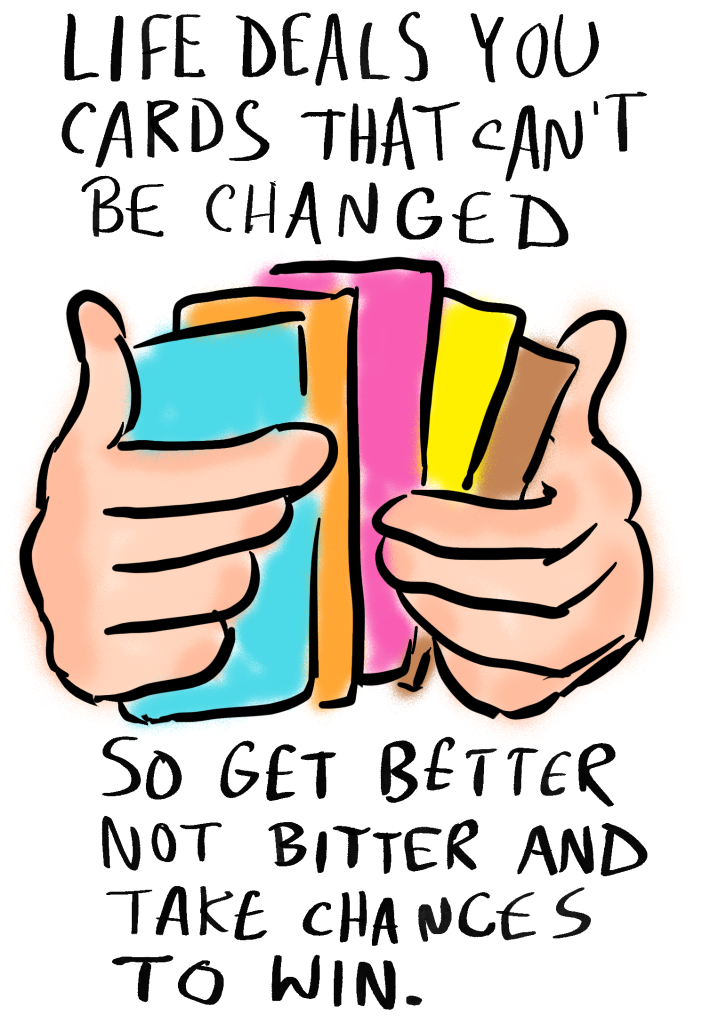 LIFE DEALS YOU
CARDS THAT CAN'T
BE CHANGED
SO GET BETTER
NOT BITTER AND
TAKE CHANCES
TO WIN.